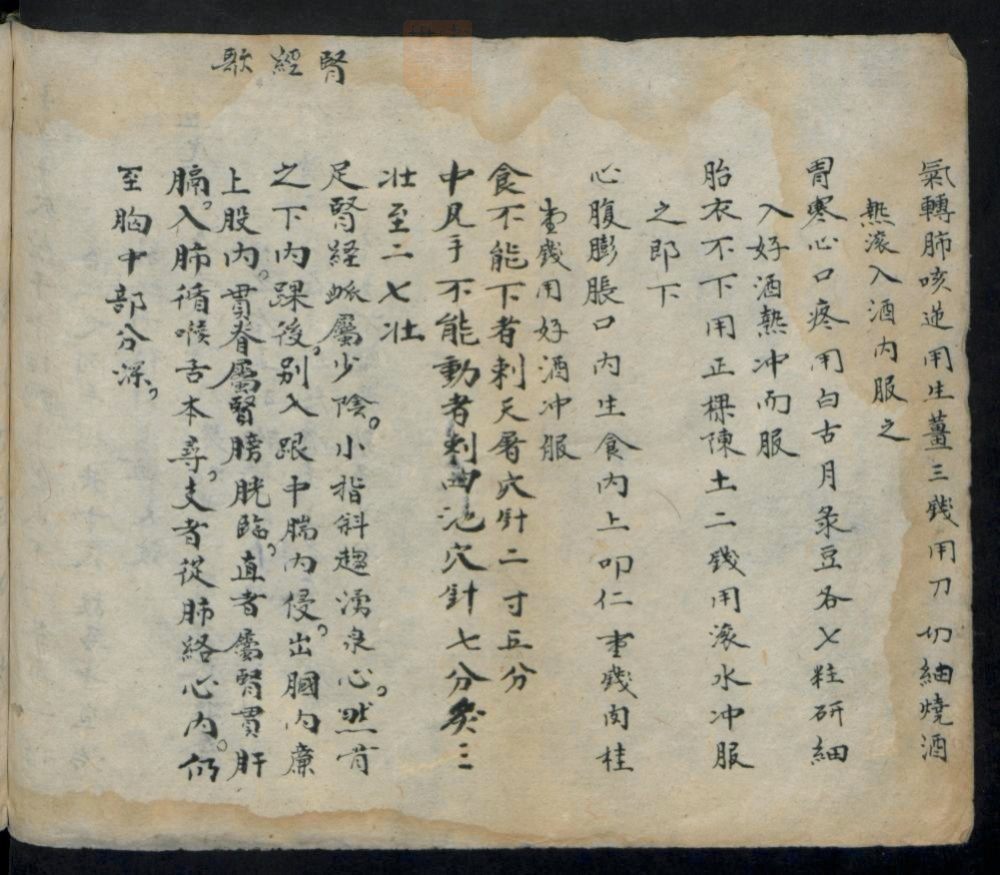 腎經歌
氣轉肺咳逆用生薑三錢用刀切細燒酒
熱滚入酒内服之
胃寒心口疼用白古月彔豆各乂粒研細
入好酒熱冲而服
胎衣不下用正樑陳土二錢用滚水冲服
之即下
心腹膨脹口内生食内上叩仁壹錢肉桂
壹錢用好酒冲服
食不能下者刺天屠穴針二寸五分
中風手不能動者刺曲池穴針七分灸三
壮至二七壮
足腎経脈屬少陰。小指斜趨湧泉心。然骨
之下内踝後。别入跟中腨内侵。出膕内廉
上股内。貫脊屬腎膀胱臨。直者屬腎貫肝
膈。入肺循喉舌本尋。支者從肺絡心内。仍
至胸中部分深。